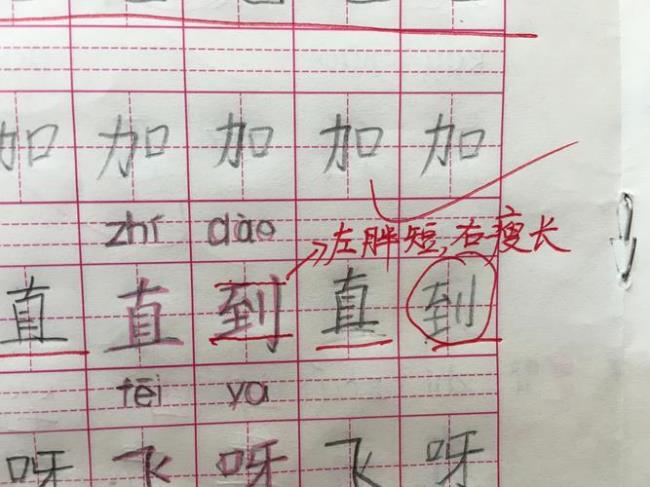 加 加 加 加 加
zhí dào
左胖短,右瘦长
直 直 到 直 到
fēi ya
呀 飞 呀 飞 呀